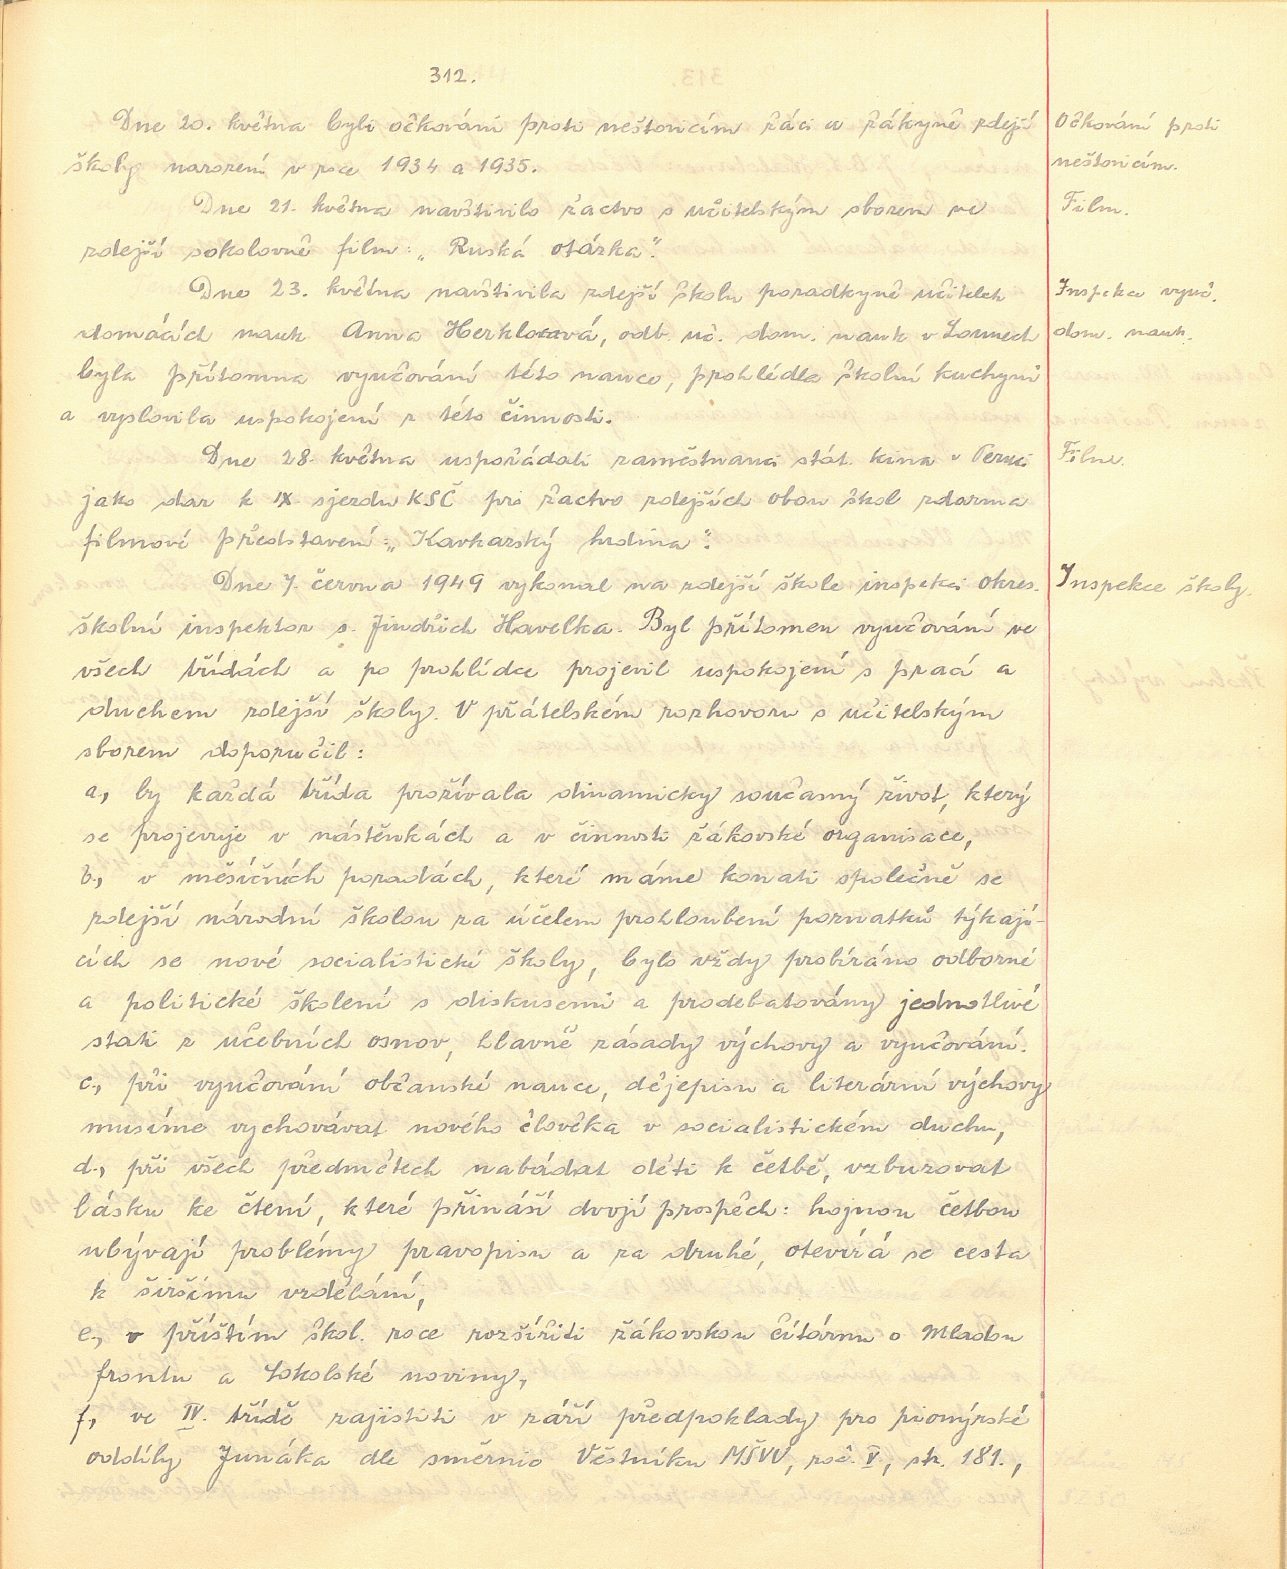 312.
Dne 20. května byli očkováni proti neštovicím žáci a žákyně zdejší
školy narození v roce 1934 a 1935.
Očkování proti
neštovicím.
Dne 21. května navštívilo žactvo s učitelským sborem ve
zdejší sokolovně film: „Ruská otázka".
Film.
Dne 23. května navštívila zdejší školu poradkyně učitelek
domácích nauk Anna Herklotzová, odb. uč. dom. nauk v Lounech
byla přítomna vyučování této nauce, prohlédla školní kuchyni
a vyslovila uspokojení z této činnosti.
Inspekce vyuč.
dom. nauk.
Dne 28. května uspořádali zaměstnanci stát. kina v Peruci
jako dar k IX. sjezdu KSČ pro žactvo zdejších obou škol zdarma
filmové představení: „Kavkazský hrdina".
Film.
Dne 7. června 1949 vykonal na zdejší škole inspekci okres.
školní inspektor s. Jindřich Havelka. Byl přítomen vyučování ve
všech třídách a po prohlídce projevil uspokojení s prací a
duchem zdejší školy. V přátelském rozhovoru s učitelským
sborem doporučil:
Inspekce školy.
a, by každá třída prožívala dinamicky současný život, který
se projevuje v nástěnkách a v činnosti žákovské organisace,
b, v měsíčních poradách, které máme konati společně se
zdejší národní školou za účelem prohloubení poznatků týkají-
cích se nové socialistické školy, bylo vždy probíráno odborné
a politické školení s diskusemi a prodebatovány jednotlivé
stati z učebních osnov, hlavně zásady výchovy a vyučování.
c, při vyučování občanské nauce, dějepisu a literární výchovy
musíme vychovávat nového člověka v socialistickém duchu,
d, při všech předmětech nabádat děti k četbě, vzbuzovat
lásku ke čtení, které přináší dvojí prospěch: hojnou četbou
ubývají problémy pravopisu a za druhé, otevírá se cesta
k širšímu vzdělání,
e, v příštím škol. roce rozšířiti žákovskou čítárnu o Mladou
frontu a Sokolské noviny,
f, ve IV. třídě zajistiti v září předpoklady pro pionýrské
oddíly Junáka dle směrnic Věstníku MŠVU, roč. V., str. 181.,